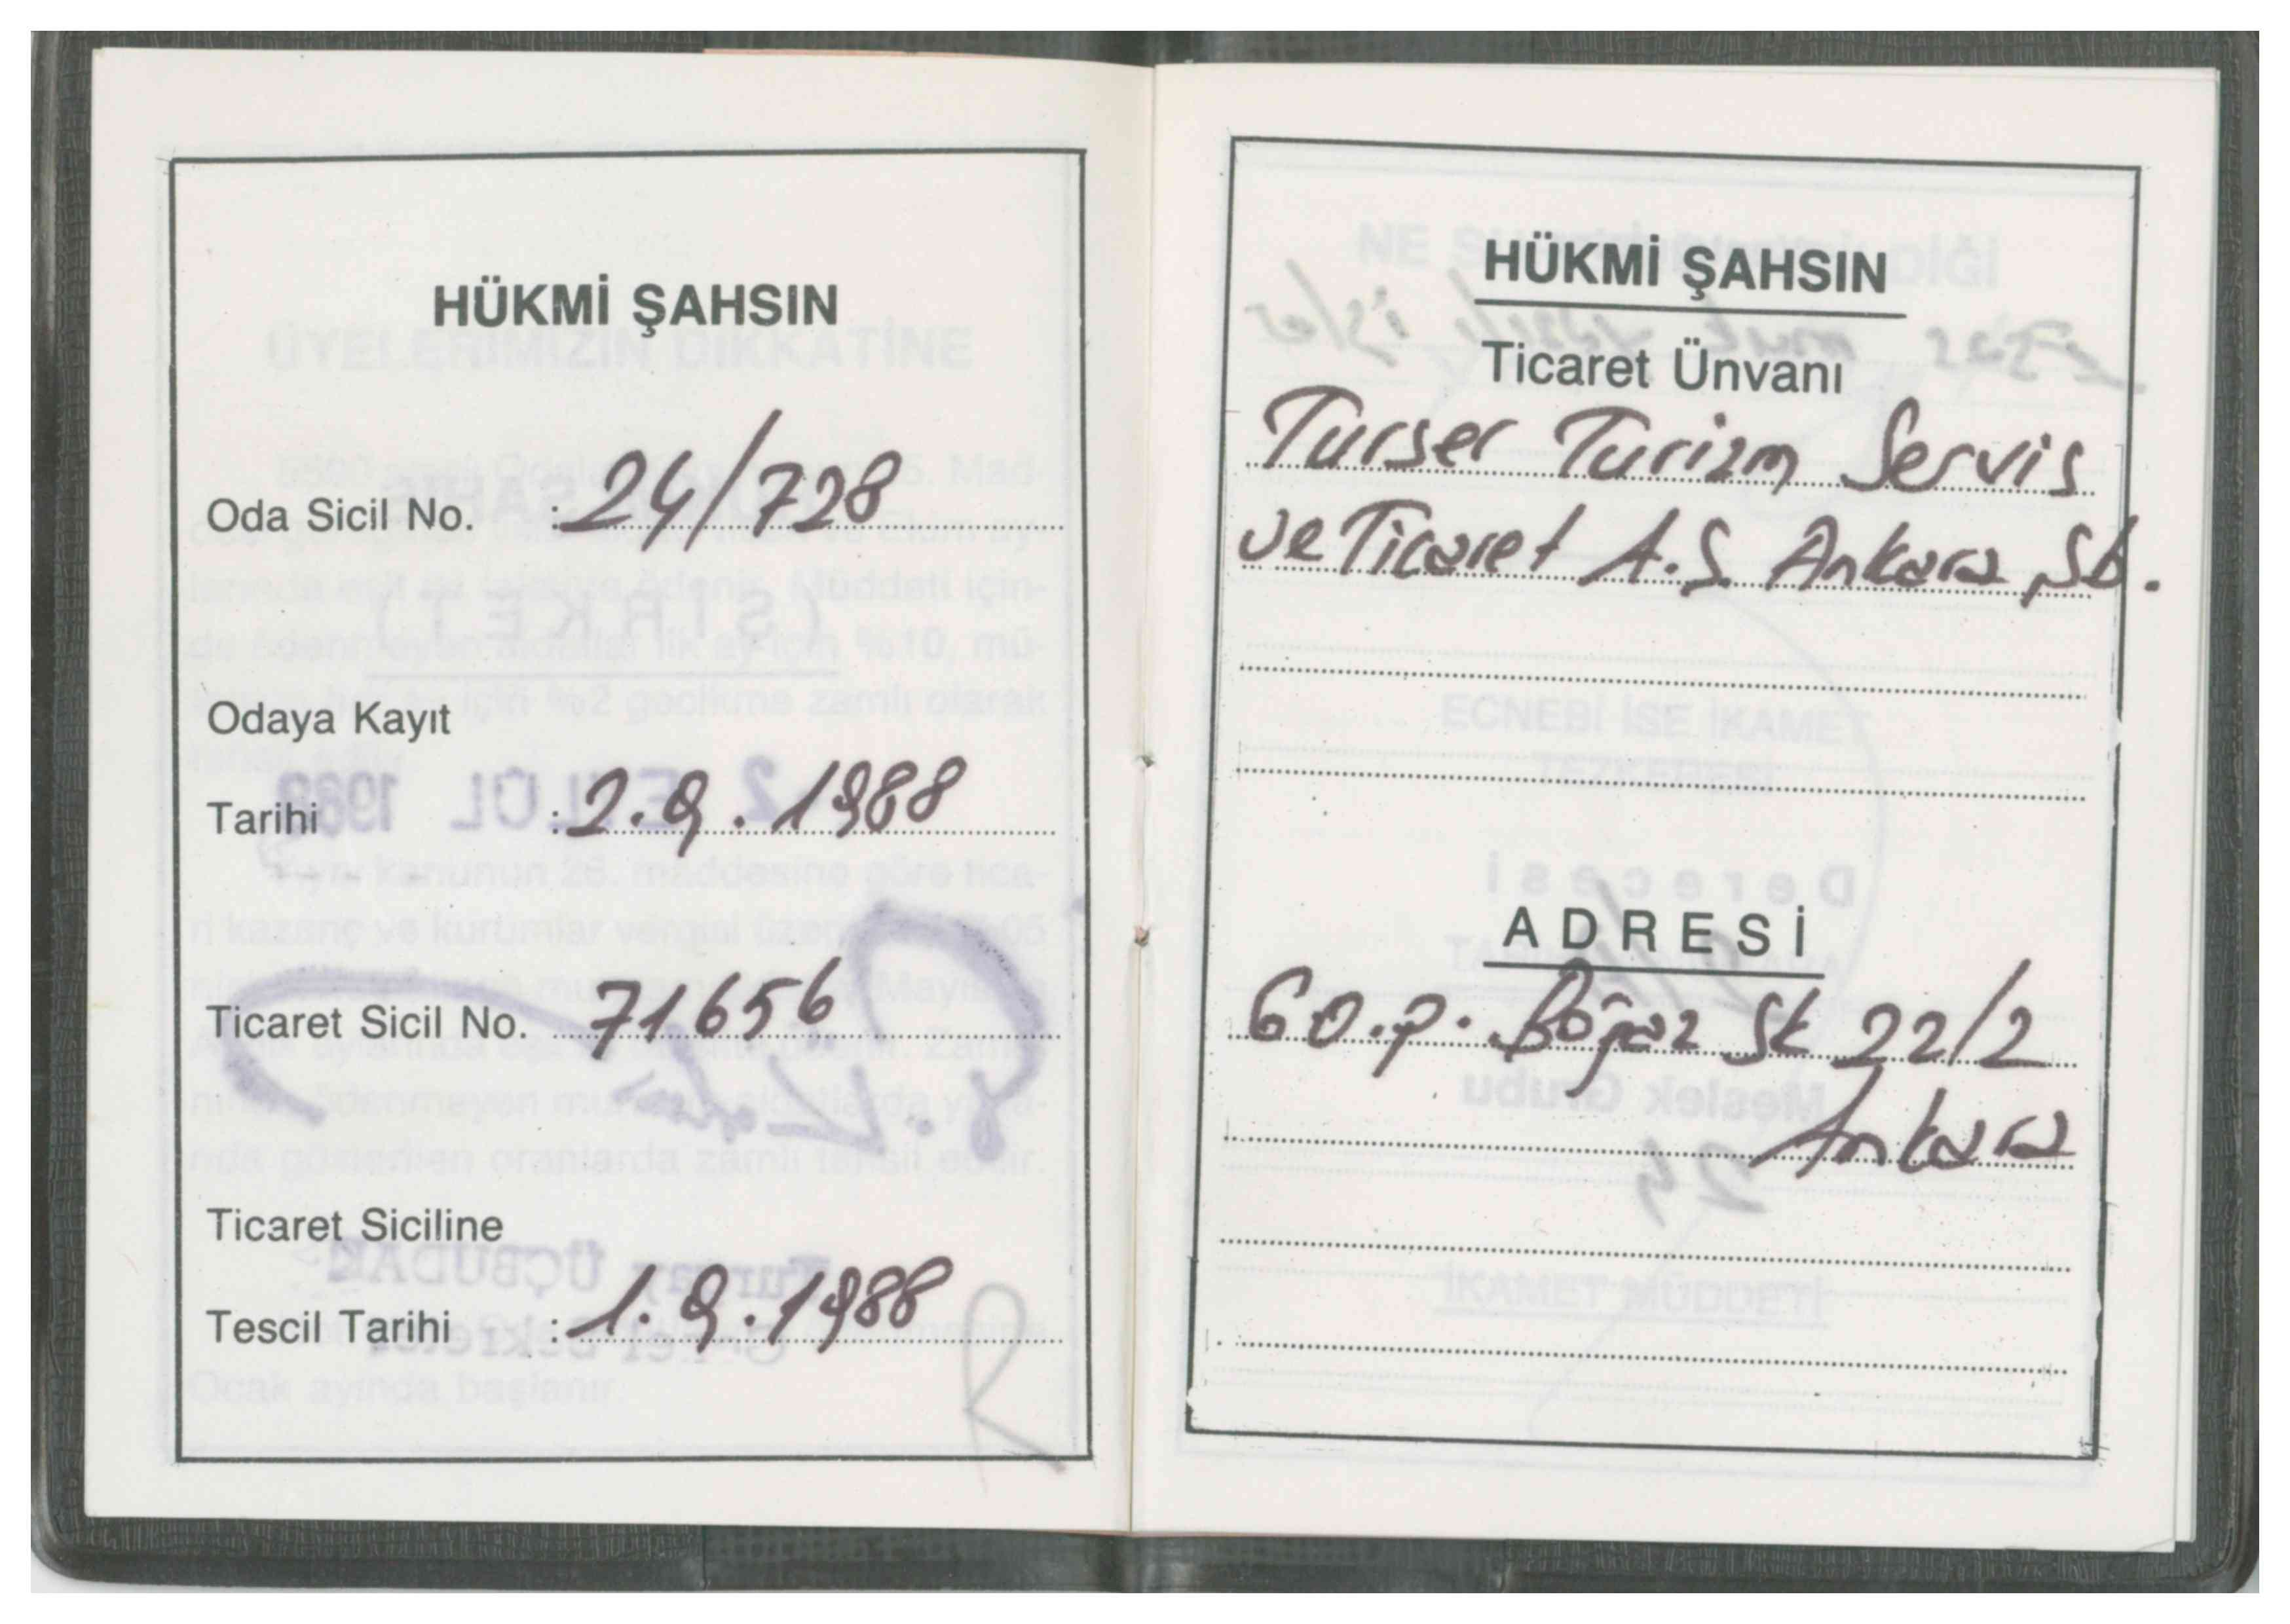 HÜKMİ ŞAHSIN
Oda Sicil No. : 24/728
Odaya Kayıt
Tarihi : 2.9.1988
Ticaret Sicil No. 71656
Ticaret Siciline
Tescil Tarihi : 1.9.1988
HÜKMİ ŞAHSIN
Ticaret Ünvanı
Turser Turizm Servis
ve Ticaret A.Ş. Ankara Şb.
ADRESİ
G.O.P. Boğaz Sk 22/2
Ankara